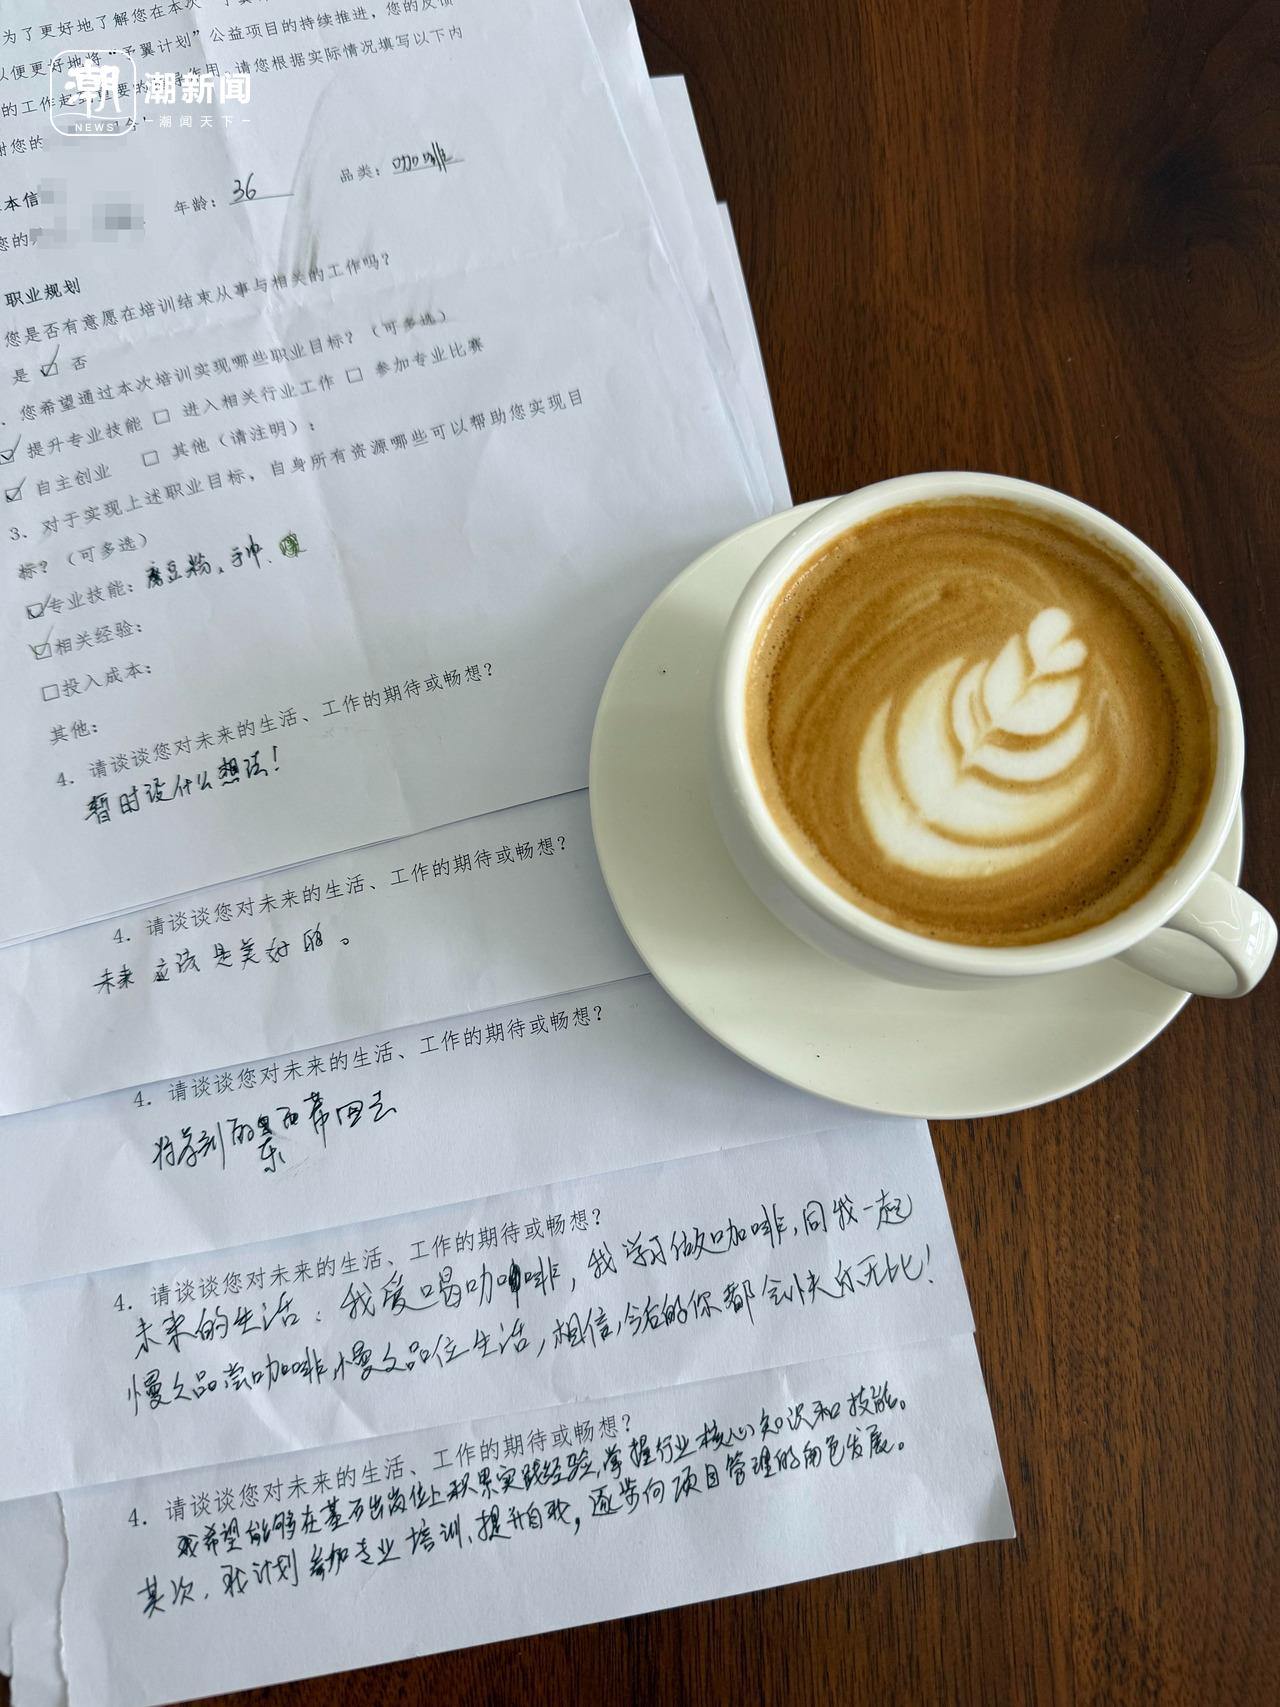 为了更好地了解您在本次
以便更好地将“予翼计划”公益项目的持续推进，您的反馈
的工作起到重要的 导作用 请您根据实际情况填写以下内
谢您的
潮
NEWS
潮新闻
潮闻天下
本信
年龄：36
品类：咖啡
您的
职业规划
您是否有意愿在培训结束从事与相关的工作吗？
是 ☑ 否
、您希望通过本次培训实现哪些职业目标？（可多选）
☑ 提升专业技能 □ 进入相关行业工作 □ 参加专业比赛
☑ 自主创业 □ 其他（请注明）：
3. 对于实现上述职业目标，自身所有资源哪些可以帮助您实现目
标？（可多选）
☑专业技能：磨豆粉、手冲、
☑相关经验：
□投入成本：
其他：
4. 请谈谈您对未来的生活、工作的期待或畅想？
暂时没什么想法！
4. 请谈谈您对未来的生活、工作的期待或畅想？
未来 应该 是美好的。
4. 请谈谈您对未来的生活、工作的期待或畅想？
将学到的东西带回去
4. 请谈谈您对未来的生活、工作的期待或畅想？
未来的生活：我爱喝咖啡，我学习做咖啡，同我一起
慢慢品尝咖啡，慢慢品位生活，相信，今后的你都会快乐无比！
4. 请谈谈您对未来的生活、工作的期待或畅想？
我希望能够在基础岗位上积累实践经验，掌握行业核心知识和技能。
其次，我计划参加专业培训、提升自我，逐步向项目管理的角色发展。